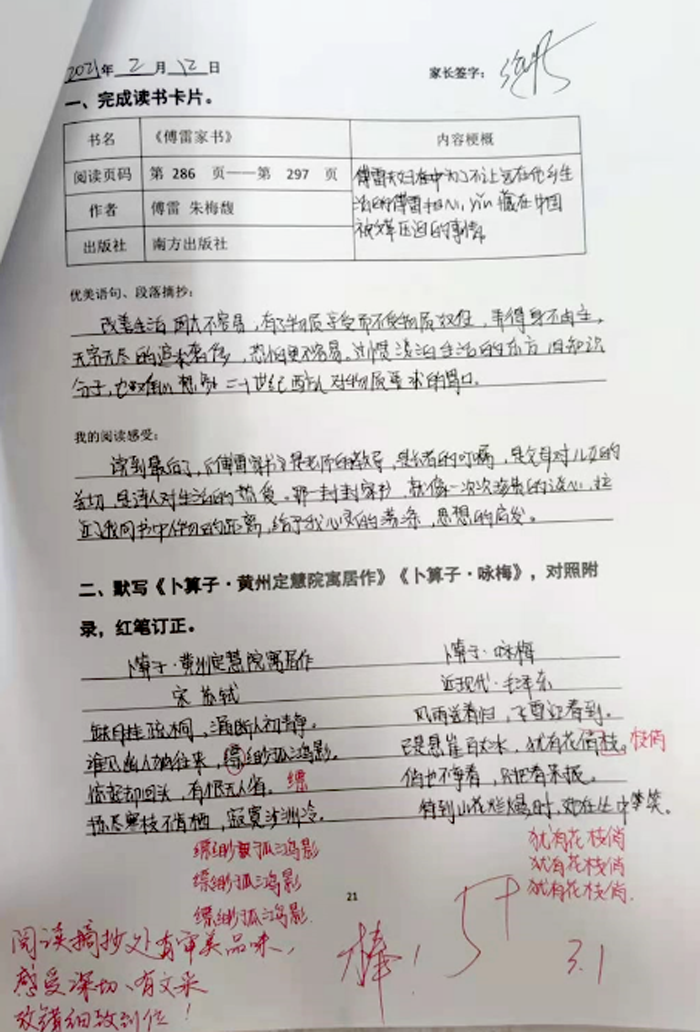 2021年 2 月 12 日 家长签字：
一、完成读书卡片。
书名 《傅雷家书》 内容梗概
阅读页码 第 286 页——第 297 页
作者 傅雷 朱梅馥
出版社 南方出版社
傅雷夫妇在中为了不让远在他乡生
活的傅雷担心，yǐn藏在中国
被迫的事情。
优美语句、段落摘抄：
改善生活固大不容易，有了物质享受而不受物质奴役，弄得身不由主，
无穷无尽的追求奢侈，恐怕更不容易。过惯淡泊生活的东方旧知识
分子，也难以想象二十世纪西方人对物质要求的胃口。
我的阅读感受：
读到最后了，《傅雷家书》是老师的教导，是长者的叮嘱，是父母对儿女的
关切，是诗人对生活的热爱。那一封封家书，就像一次次亲切的谈心，拉
近了我同书中人物的距离，给予我心灵的荡涤，思想的启发。
二、默写《卜算子·黄州定慧院寓居作》《卜算子·咏梅》，对照附
录，红笔订正。
卜算子·黄州定慧院寓居作
宋 苏轼
缺月挂疏桐，漏断人初静。
谁见幽人独往来，缥缈孤鸿影。
惊起却回头，有恨无人省。 缥
拣尽寒枝不肯栖，寂寞沙洲冷。
缥缈孤鸿影
缥缈孤鸿影
缥缈孤鸿影
卜算子·咏梅
近现代·毛泽东
风雨送春归，飞雪迎春到。
已是悬崖百丈冰，犹有花俏枝。 枝俏
俏也不争春，只把春来报。
待到山花烂熳时，她在丛中笑。
犹有花枝俏
犹有花枝俏
犹有花枝俏
21
阅读摘抄处有审美品味，
感受深切、有文采
改错细致到位！
棒！
5+
3.1